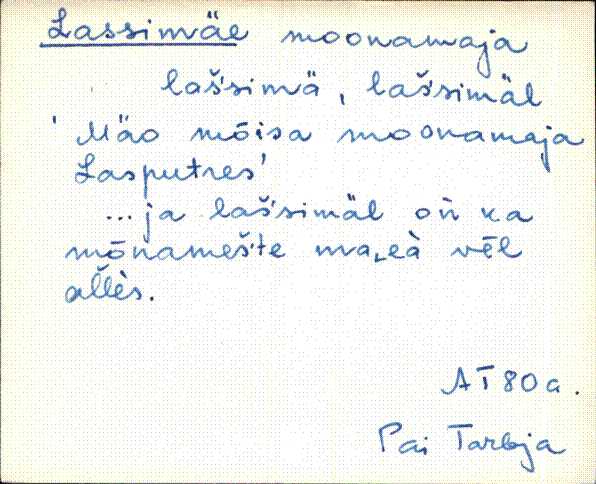 Lassimäe moonamaja
laśsimä, laśsimäl
'Mäo mõisa moonamaja
Lasputres'
...ja laśsimäl oǹ ka
mōnameśte ma‿eà vēl
alĺès.
AT 80 a.
Pai Tarbja